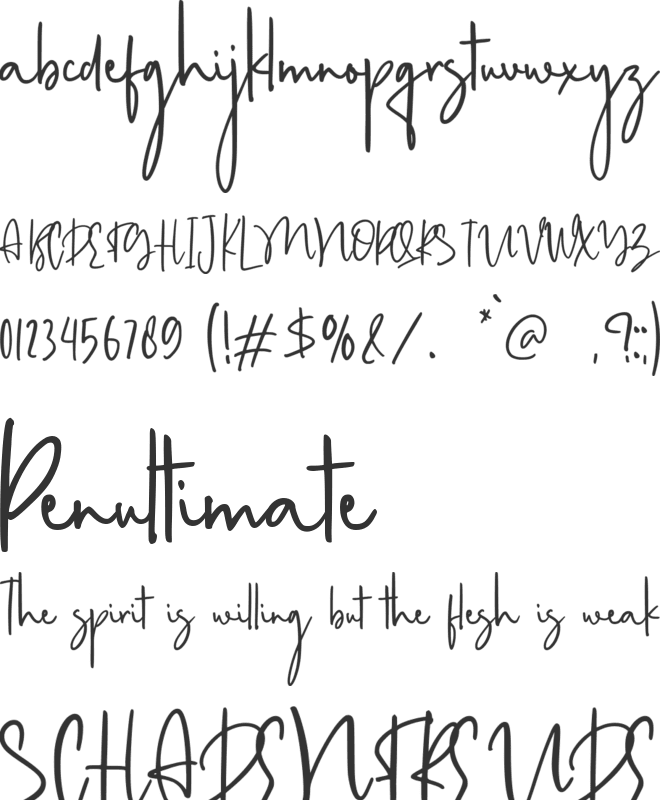 abcdefghijklmnopqrstuvwxyz
ABCDEFGHIJKLMNOPQRSTUVWXYZ
0123456789 (!#$%&/. *`@ ,?:;)
Penultimate
The spirit is willing but the flesh is weak
SCHADENFREUDE